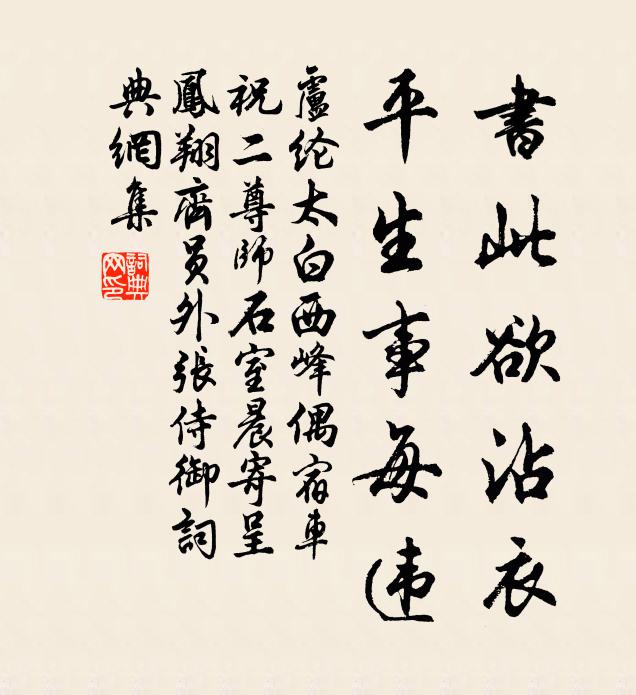 書此欲沾衣
平生事每违
盧纶太白西峰偶宿車
祝二尊師石室晨寄呈
鳳翔齊员外張侍御詞
典網集
詞典
网印